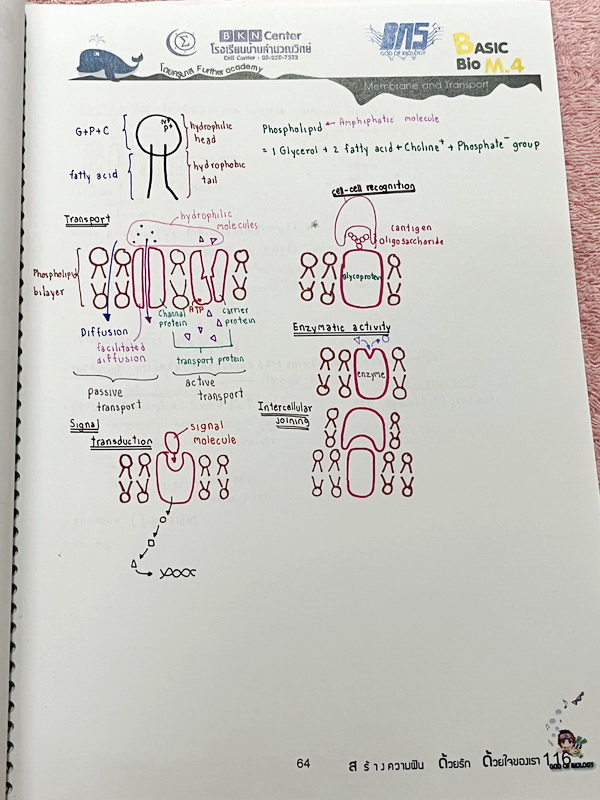 BKN Center
โรงเรียนบ้านคำนวณวิทย์
Call Center : 02-250-7333
โดยครูมาส Further academy
BNS
GOD OF BIOLOGY
BASIC
Bio M.4
Membrane and Transport
G+P+C
hydrophilic
head
fatty acid
hydrophobic
tail
Phospholipid ← Amphiphatic molecule
= 1 Glycerol + 2 fatty acid + Choline⁺ + Phosphate⁻ group
Transport
hydrophilic
molecules
Phospholipid
bilayer
ATP
Channal
protein
carrier
protein
Diffusion
facilitated
diffusion
transport protein
passive
transport
active
transport
cell-cell recognition
antigen
oligosaccharide
glycoprotein
Enzymatic activity
enzyme
Intercellular
joining
Signal
transduction
signal
molecule
64
สร้างความฝัน ด้วยรัก ด้วยใจของเรา 116
GOD OF BIOLOGY